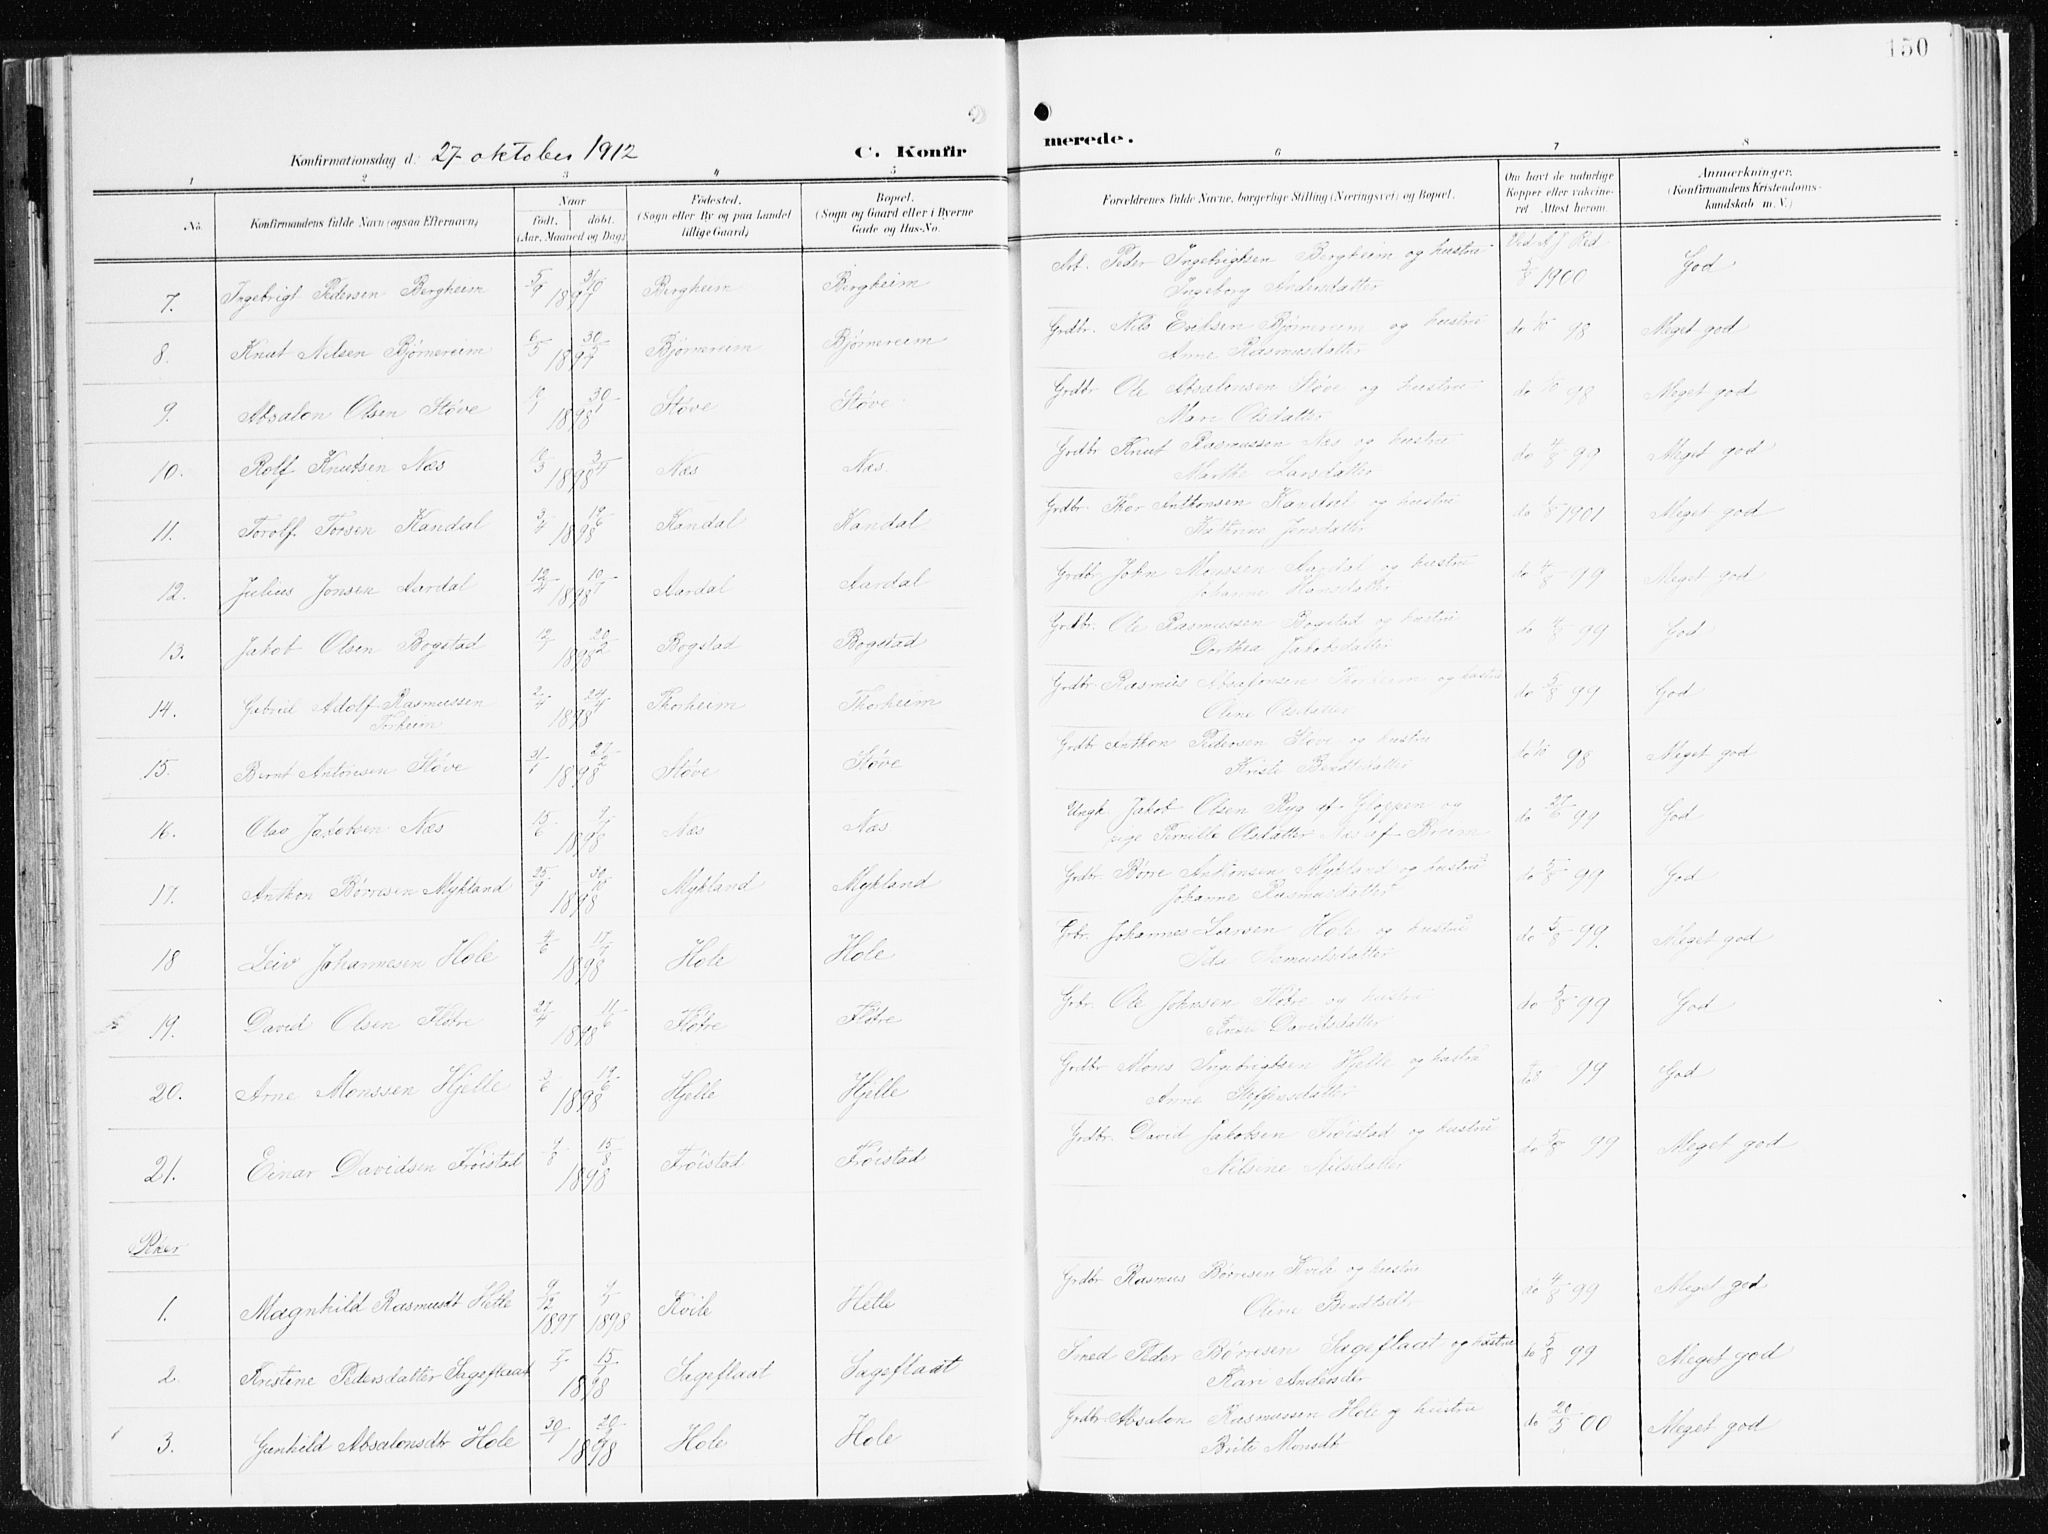 150
Konfirmationsdag d. 27 oktober 1912
C. Konfirmerede.
1 2 3 4 5 6 7 8
No.
Konfirmandens fulde Navn (ogsaa Efternavn)
Naar født. døbt. (Aar, Maaned og Dag)
Fødested. (Sogn eller By og paa Landet tillige Gaard)
Bopæl. (Sogn og Gaard eller i Byerne Gade og Hus-No.
Forældrenes fulde Navne, borgerlige Stilling (Næringsvei) og Bopæl.
Om havt de naturlige Kopper eller vakcineret. Attest herom.
Anmærkninger. (Konfirmandens Kristendomskundskab m. V.)
7. Ingebrigt Pedersen Bergheim 5/9 31/10 1897 Bergheim Bergheim Arb. Peder Ingebrigtsen Bergheim og hustru Ingeborg Andersdatter 1900 God
8. Knut Nilsen Bjørnereim 6/5 30/5 1897 Bjørnereim Bjørnereim Grdbr. Nils Eriksen Bjørnereim og hustru Anne Rasmusdatter do 98 Meget god
9. Absalon Olsen Støve 30/1 1898 Støve Støve Grdbr Ole Absalonsen Støve og hustru Mari Olsdatter do 98 Meget god
10. Rolf Knutsen Næs 1898 Næs Næs Grdbr Knut Rasmussen Næs og hustru Marthe Larsdatter do 4/8 99 Meget god
11. Torolf Torsen Kandal 3/4 19/6 1898 Kandal Kandal Grdbr. Thor Anthonsen Kandal og hustru Katrine Jensdatter do 1901 Meget god
12. Julius Jonsen Aardal 12/4 1898 Aardal Aardal Grdbr John Monssen Aardal og hustru Johanne Hansdatter do 4/8 99 Meget god
13. Jakob Olsen Bogstad 12/1 20/2 1898 Bogstad Bogstad Grdbr. Ole Rasmussen Bogstad og hustru Dorthea Jakobsdatter do 4/8 99 God
14. Gabriel Adolf Rasmussen Torheim 2/4 24/4 1898 Thorheim Thorheim Grdbr Rasmus Absalonsen Thorheim og hustru Oline Olsdatter do 5/8 99 God
15. Bernt Antonsen Støve 31/1 27/2 1898 Støve Støve Grdbr Anthon Pedersen Støve og hustru Kristi Bendtsdatter do 98 Meget god
16. Olav Jakobsen Næs 15/6 1898 Næs Næs Ungk. Jakob Olsen Ryg af Gloppen og pige Pernille Olsdatter Næs af Breim do 27/6 99 God
17. Anthon Børresen Mykland 25/9 30/10 1898 Mykland Mykland Grdbr. Børre Anthonsen Mykland og hustru Johanne Rasmusdatter do 5/8 99 God
18 Leiv Johannesen Hole 4/6 17/7 1898 Hole Hole Grbr. Johannes Larsen Hole og hustru Ida Samuelsdatter do 5/8 99 Meget god
19. David Olsen Fløtre 27/4 11/6 1898 Fløtre Fløtre Grbr. Ole Johnsen Fløtre og hustru Davidsdatter do 5/8 99 God
20. Arne Monssen Hjelle 3/6 19/6 1898 Hjelle Hjelle Grdbr Mons Ingebrigtsen Hjelle og hustru Anne Steffensdatter do 99 God
21. Einar Davidsen Frøistad 15/8 1898 Frøistad Frøistad Grdbr. David Jakobsen Frøistad og hustru Nilsine Nilsdatter do 5/8 99 Meget god
Piker
1. Magnhild Rasmusdt Hetle 9/12 1897 1898 Kvile Hetle Grdbr Rasmus Børresen Kvile og hustru Oline Bendtsdt. do 4/8 99 Meget god
2. Kristine Pedersdatter Sageflaat 15/1 1898 Sageflaat Sageflaat Smed Peder Børresen Sageflaat og hustru Kari Andersdtr do 5/8 99 Meget god
3. Gunhild Absalonsdtr Hole 30/1 1898 Hole Hole Grdbr Absalon Rasmussen Hole og hustru Brite Monsdt do 20/5 00 Meget god